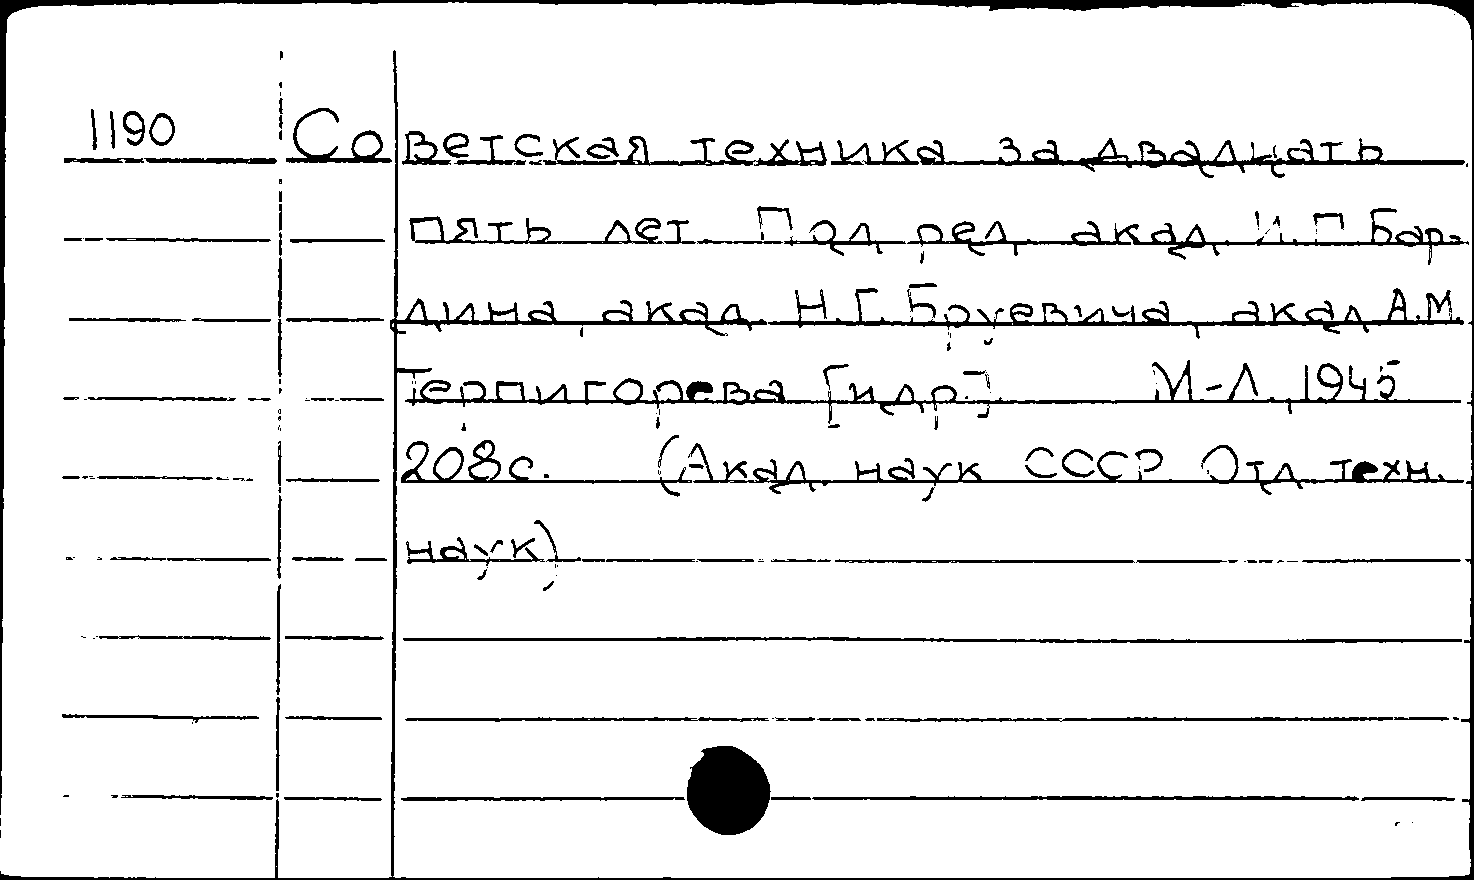 1190 Советская техника за двадцать
пять лет. Под ред. акад. И.П Бар-
дина, акад. Н.Г. Бруевича, акад А.М.
Терпигорева [идр.] М-Л., 1945
208с. (Акад. наук СССР Отд. техн.
наук)